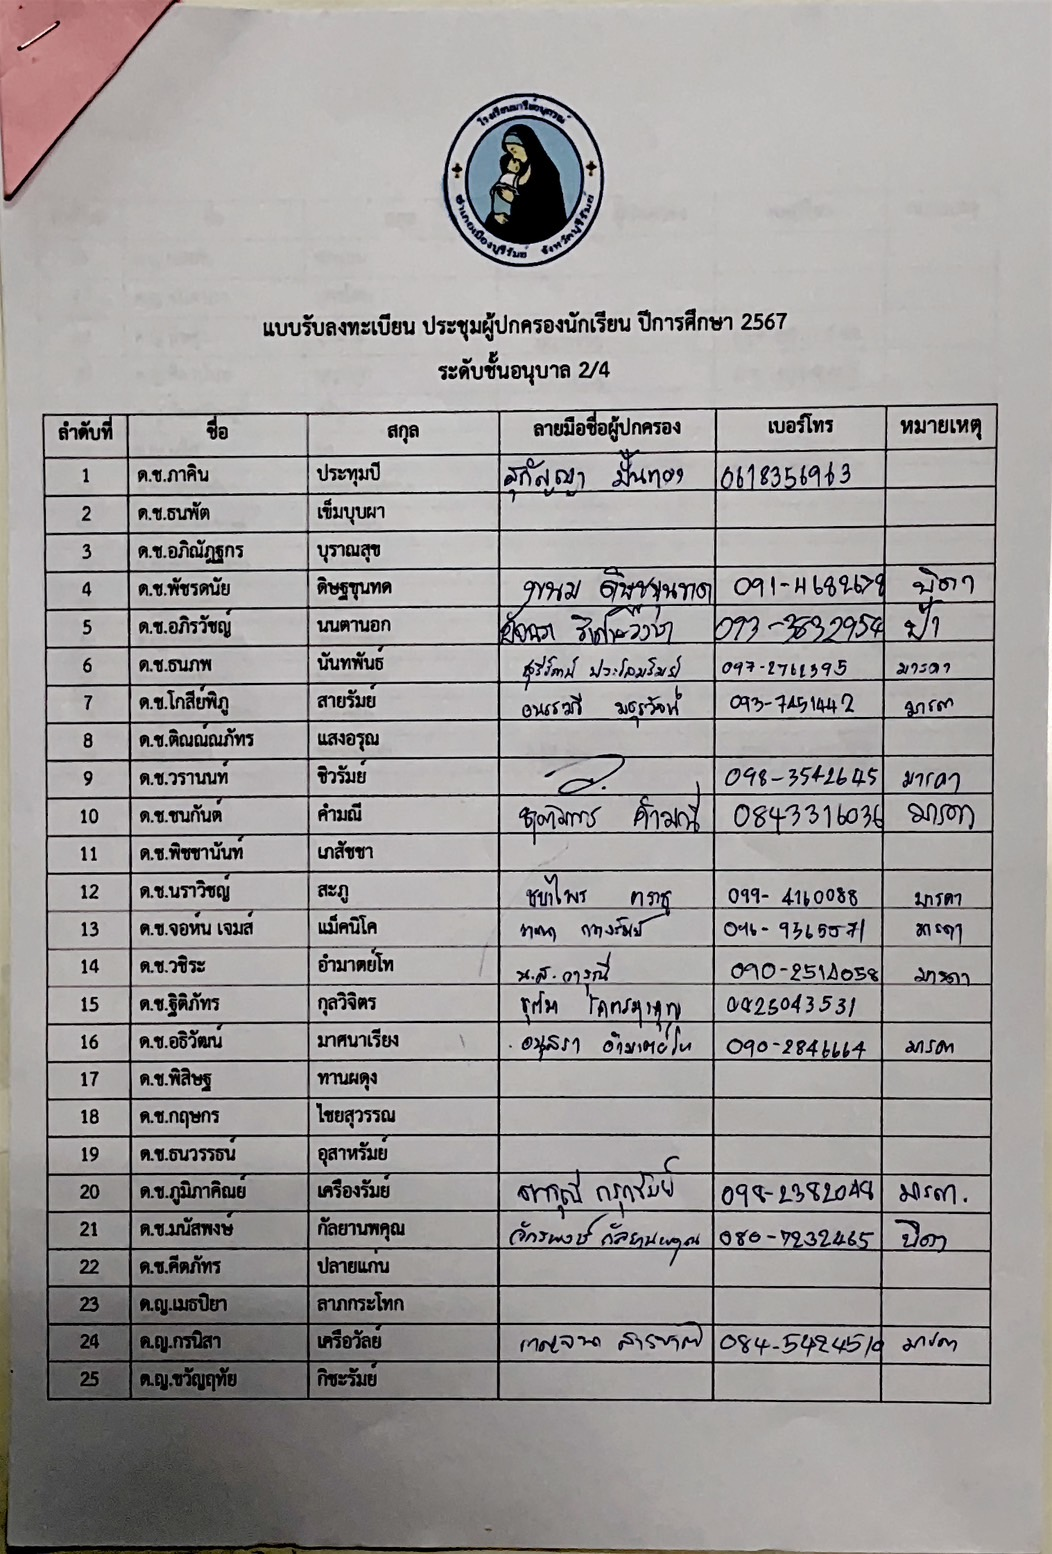 โรงเรียนมารีย์อนุสรณ์
อำเภอเมืองบุรีรัมย์ จังหวัดบุรีรัมย์
แบบรับลงทะเบียน ประชุมผู้ปกครองนักเรียน ปีการศึกษา 2567
ระดับชั้นอนุบาล 2/4
ลำดับที่ ชื่อ สกุล ลายมือชื่อผู้ปกครอง เบอร์โทร หมายเหตุ
1 ด.ช.ภาคิน ประทุมปี สุกัญญา ปั้นทอง 0618356963
2 ด.ช.ธนพัต เข็มบุบผา
3 ด.ช.อภิณัฏฐกร บุราณสุข
4 ด.ช.พัชรดนัย ดิษฐขุนทด พนม ดิษฐขุนทด 091-4682678 บิดา
5 ด.ช.อภิรวัชญ์ นนตานอก 093-3832954 ป้า
6 ด.ช.ธนภพ นันทพันธ์ 097-2762395 มารดา
7 ด.ช.โกสีย์พิภู สายรัมย์ 093-7451442 มารดา
8 ด.ช.ติณณ์ณภัทร แสงอรุณ
9 ด.ช.วรานนท์ ชิวรัมย์ 098-3542645 มารดา
10 ด.ช.ชนกันต์ คำมณี คำมณี 0843316036 มารดา
11 ด.ช.พิชชานันท์ เภสัชชา
12 ด.ช.นราวิชญ์ สะภู 099-4160088 มารดา
13 ด.ช.จอห์น เจมส์ แม็คนิโค มารดา
14 ด.ช.วชิระ อำมาตย์โท น.ส. วารุณี 090-2514058 มารดา
15 ด.ช.ฐิติภัทร กุลวิจิตร
16 ด.ช.อธิวัฒน์ มาศนาเรียง อนุสรา อำมาตย์โท 090-2846664 มารดา
17 ด.ช.พิสิษฐ ทานผดุง
18 ด.ช.กฤษกร ไชยสุวรรณ
19 ด.ช.ธนวรรธน์ อุสาหรัมย์
20 ด.ช.ภูมิภาคิณย์ เครืองรัมย์ 098-2382048 มารดา.
21 ด.ช.มนัสพงษ์ กัลยานพคุณ จักรพงษ์ กัลยานพคุณ 080-7232465 บิดา
22 ด.ช.คีตภัทร ปลายแก่น
23 ด.ญ.เมธปิยา ลาภกระโทก
24 ด.ญ.กรนิสา เครือวัลย์ กาญจนา 084-5424510 มารดา
25 ด.ญ.ขวัญฤทัย กิชะรัมย์